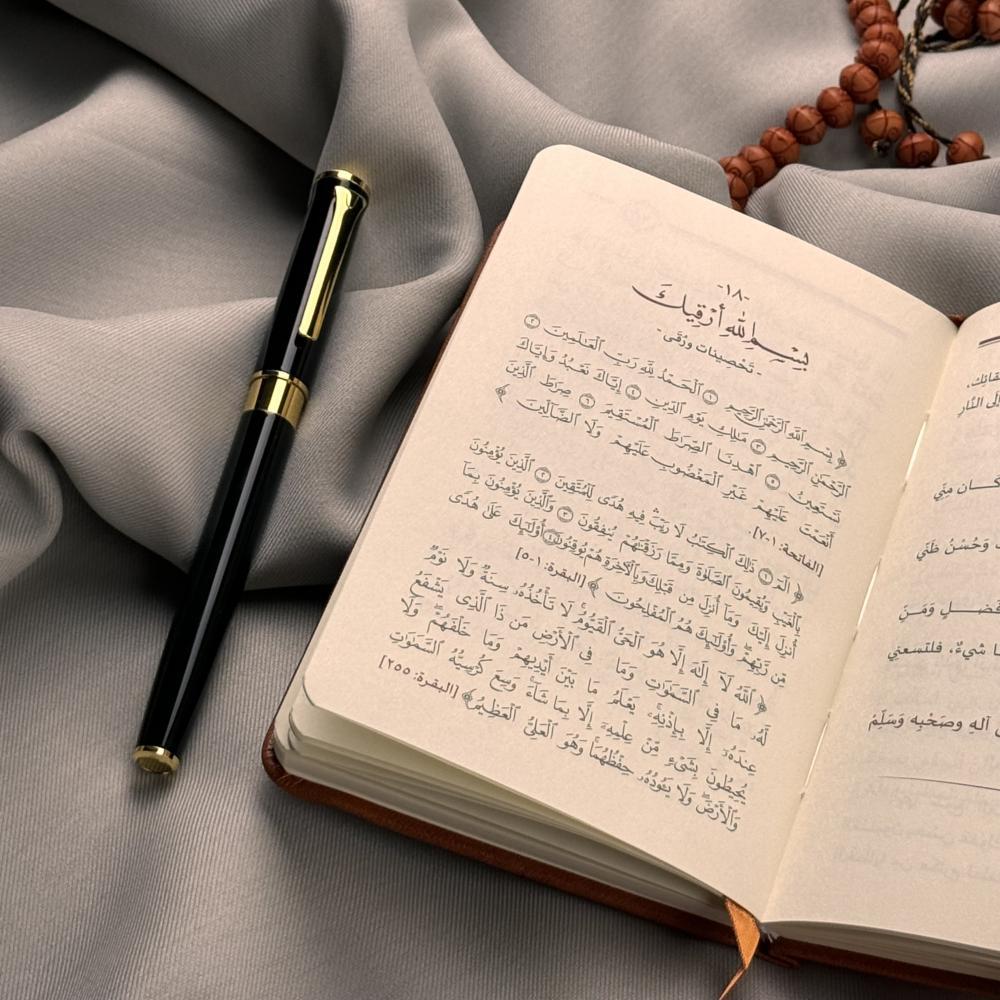 -١٨-
بِسْمِ اللهِ أَرْقِيكَ
- تَحْصِينات ورُقَى -
﴿ بِسْمِ ٱللَّهِ ٱلرَّحْمَٰنِ ٱلرَّحِيمِ ١ ٱلْحَمْدُ لِلَّهِ رَبِّ ٱلْعَٰلَمِينَ ٢
ٱلرَّحْمَٰنِ ٱلرَّحِيمِ ٣ مَٰلِكِ يَوْمِ ٱلدِّينِ ٤ إِيَّاكَ نَعْبُدُ وَإِيَّاكَ
نَسْتَعِينُ ٥ ٱهْدِنَا ٱلصِّرَٰطَ ٱلْمُسْتَقِيمَ ٦ صِرَٰطَ ٱلَّذِينَ
أَنْعَمْتَ عَلَيْهِمْ غَيْرِ ٱلْمَغْضُوبِ عَلَيْهِمْ وَلَا ٱلضَّآلِّينَ ﴾
[الفاتحة: ١-٧].
﴿ الٓمٓ ١ ذَٰلِكَ ٱلْكِتَٰبُ لَا رَيْبَ ۛ فِيهِ هُدًى لِّلْمُتَّقِينَ ٢ ٱلَّذِينَ يُؤْمِنُونَ
بِٱلْغَيْبِ وَيُقِيمُونَ ٱلصَّلَوٰةَ وَمِمَّا رَزَقْنَٰهُمْ يُنفِقُونَ ٣ وَٱلَّذِينَ يُؤْمِنُونَ بِمَا
أُنزِلَ إِلَيْكَ وَمَآ أُنزِلَ مِن قَبْلِكَ وَبِٱلْأَخِرَةِ هُمْ يُوقِنُونَ ٤ أُوْلَٰٓئِكَ عَلَىٰ هُدًى
مِّن رَّبِّهِمْ ۖ وَأُوْلَٰٓئِكَ هُمُ ٱلْمُفْلِحُونَ ﴾ [البقرة: ١-٥]
﴿ ٱللَّهُ لَآ إِلَٰهَ إِلَّا هُوَ ٱلْحَىُّ ٱلْقَيُّومُ ۚ لَا تَأْخُذُهُۥ سِنَةٌ وَلَا نَوْمٌ ۚ
لَّهُۥ مَا فِى ٱلسَّمَٰوَٰتِ وَمَا فِى ٱلْأَرْضِ ۗ مَن ذَا ٱلَّذِى يَشْفَعُ
عِندَهُۥٓ إِلَّا بِإِذْنِهِۦ ۚ يَعْلَمُ مَا بَيْنَ أَيْدِيهِمْ وَمَا خَلْفَهُمْ ۖ وَلَا
يُحِيطُونَ بِشَىْءٍ مِّنْ عِلْمِهِۦٓ إِلَّا بِمَا شَآءَ ۚ وَسِعَ كُرْسِيُّهُ ٱلسَّمَٰوَٰتِ
وَٱلْأَرْضَ ۖ وَلَا يَـُٔودُهُۥ حِفْظُهُمَا ۚ وَهُوَ ٱلْعَلِىُّ ٱلْعَظِيمُ ﴾ [البقرة: ٢٥٥]
النَّارِ
كـان مِنِّي
وَحُسْنُ ظَنِّي
وَمَـنّ
شيءٌ، فلتسعني
آلهِ وصَحْبِه وَسَلِّمْ